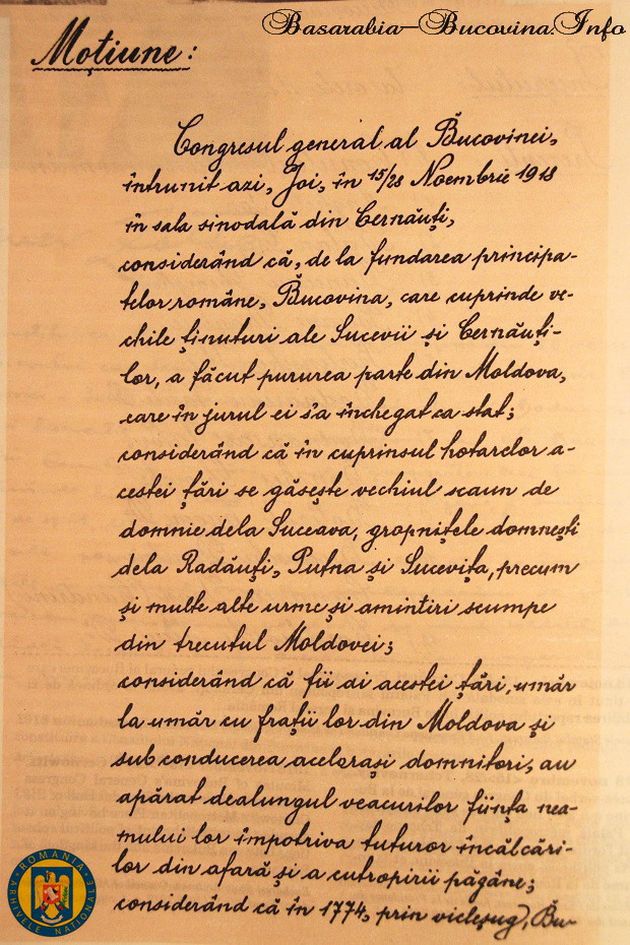 Basarabia-Bucovina.Info
Moțiune:
Congresul general al Bucovinei,
întrunit azi, Joi, în 15/28 Noembrie 1918
în sala sinodală din Cernăuți,
considerând că, de la fundarea principa-
telor române, Bucovina, care cuprinde ve-
chile ținuturi ale Sucevii și Cernăuți-
lor, a făcut pururea parte din Moldova,
care în jurul ei s'a închegat ca stat;
considerând că în cuprinsul hotarelor a-
cestei țări se găsește vechiul scaun de
domnie dela Suceava, gropnițele domnești
dela Radăuți, Putna și Sucevița, precum
și multe alte urme și amintiri scumpe
din trecutul Moldovei;
considerând că fii ai acestei țări, umăr
la umăr cu frații lor din Moldova și
sub conducerea acelorași domnitori, au
apărat dealungul veacurilor ființa nea-
mului lor împotriva tuturor încălcări-
lor din afară și a cutropirii păgâne;
considerând că în 1774, prin vicleșug, Bu-
ROMANIA
ARHIVELE NATIONALE